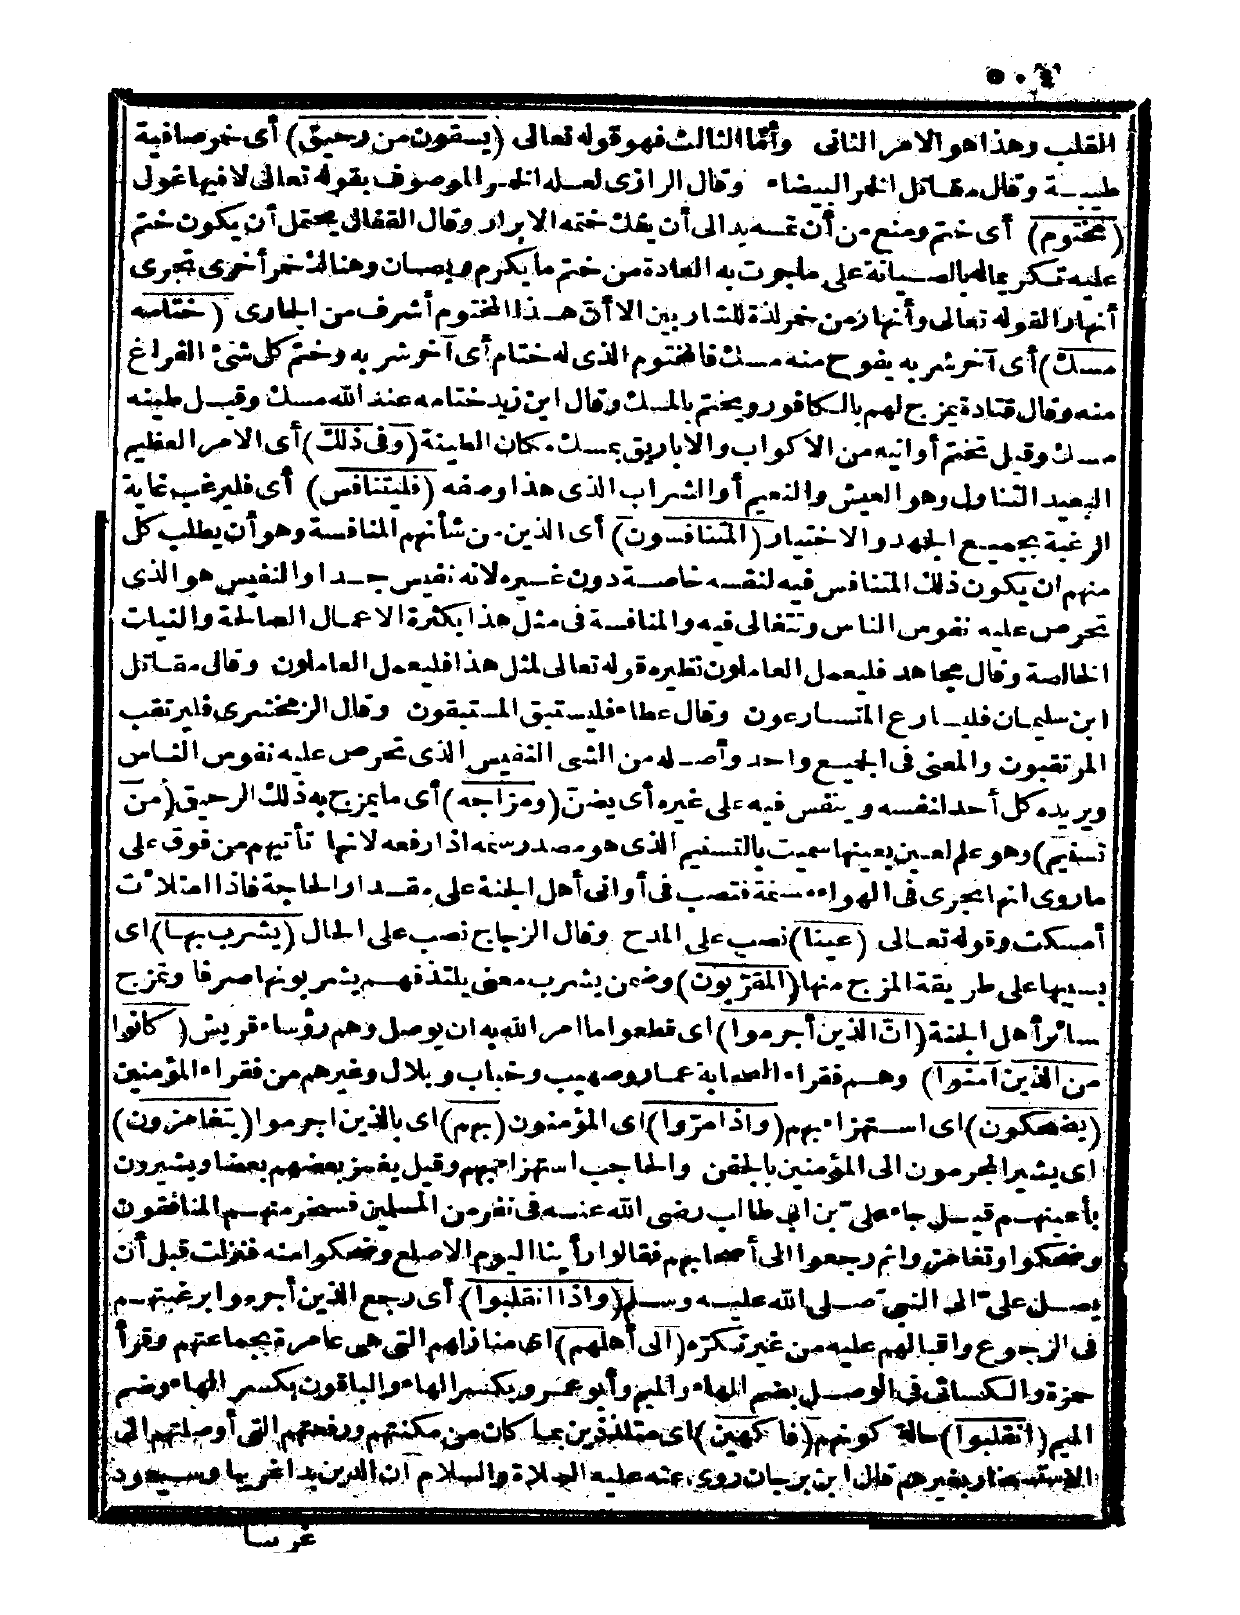 ٥٠٤
القلب وهذا هو الامر الثانى وأمّا الثالث فهو قوله تعالى (يسقون من رحيق) أى خمر صافية
طيبة وقال مقاتل الخمر البيضاء وقال الرازى لعله الخمر الموصوف بقوله تعالى لا فيها غول
(مختوم) أى ختم ومنع من أن تمسه يد الى أن يفك ختمه الابرار وقال القفال يحتمل أن يكون ختم
عليه تكريما له بالصيانة على ماجرت به العادة من ختم ما يكرم ويصان وهنالك خمر أخرى تجرى
أنهار القوله تعالى وأنهار من خمر لذة للشاربين الا أنّ هذا المختوم أشرف من الجارى (ختامه
مسك) أى آخر شربه يفوح منه مسك فالمختوم الذى له ختام أى آخر شربه وختم كل شئ الفراغ
منه وقال قتادة يمزج لهم بالكافور ويختم بالمسك وقال ابن زيد ختامه عند الله مسك وقيل طينه
مسك وقيل تختم أوانيه من الأكواب والاباريق بمسك مكان الطينة (وفى ذلك) أى الامر العظيم
البعيد التناول وهو العيش والنعيم أو الشراب الذى هذا وصفه (فليتنافس) أى فليرغب غاية
الرغبة بجميع الجهد والاختيار (المتنافسون) أى الذين من شأنهم المنافسة وهو أن يطلب كل
منهم ان يكون ذلك المتنافس فيه لنفسه خاصة دون غيره لانه نفيس جدا والنفيس هو الذى
تحرص عليه نفوس الناس وتتغالى فيه والمنافسة فى مثل هذا بكثرة الاعمال الصالحة والنيات
الخالصة وقال مجاهد فليعمل العاملون نظيره قوله تعالى لمثل هذا فليعمل العاملون وقال مقاتل
ابن سليمان فليسارع المتسارعون وقال عطاء فليستبق المستبقون وقال الزمخشرى فليرتقب
المرتقبون والمعنى فى الجميع واحد وأصله من الشى النفيس الذى تحرص عليه نفوس الناس
ويريده كل أحد لنفسه وينفس فيه على غيره أى يضنّ (ومزاجه) أى ما يمزج به ذلك الرحيق (من
تسنيم) وهو علم لعين بعينها سميت بالتسنيم الذى هو مصدر سنمه اذا رفعه لانها تأتيهم من فوق على
ماروى انها تجرى فى الهواء مسنمة فتصب فى أوانى أهل الجنة على مقدار الحاجة فاذا امتلأت
أمسكت وقوله تعالى (عينا) نصب على المدح وقال الزجاج نصب على الحال (يشرب بها) اى
بسببها على طريقة المزج منها (المقرّبون) وضمن يشرب معنى يلتذ فهم يشربونها صرفا وتمزج
سائر أهل الجنة (انّ الذين أجرموا) اى قطعوا ما امر الله به ان يوصل وهم رؤساء قريش (كانوا
من الذين آمنوا) وهم فقراء الصحابة عمار وصهيب وخباب وبلال وغيرهم من فقراء المؤمنين
(يضحكون) اى استهزاء بهم (واذا مرّوا) اى المؤمنون (بهم) اى بالذين اجرموا (يتغامزون)
اى يشير المجرمون الى المؤمنين بالجفن والحاجب استهزاء بهم وقيل يغمز بعضهم بعضا ويشيرون
بأعينهم قيل جاء علىّ بن ابى طالب رضى الله عنه فى نفر من المسلمين فسخر منهم المنافقون
وضحكوا وتغامزوا ثم رجعوا الى أصحابهم فقالوا رأينا اليوم الاصلع وضحكوا منه فنزلت قبل أن
يصل علىّ الى النبىّ صلى الله عليه وسلم (واذا انقلبوا) أى رجع الذين أجرموا برغبتهم
فى الرجوع واقبالهم عليه من غير تكرّه (الى أهلهم) اى منازلهم التى هى عامرة بجماعتهم وقرأ
حمزة والكسائى فى الوصل بضم الهاء والميم وأبو عمرو بكسر الهاء والباقون بكسر الهاء وضم
الميم (انقلبوا) حالة كونهم (فاكهين) اى متلذذين بما كان من مكنتهم ورفعتهم التى أوصلتهم الى
الاستسخار بغيرهم قال ابن برجان روى عنه عليه الصلاة والسلام ان الدين بدا غريبا وسيعود
غريبا